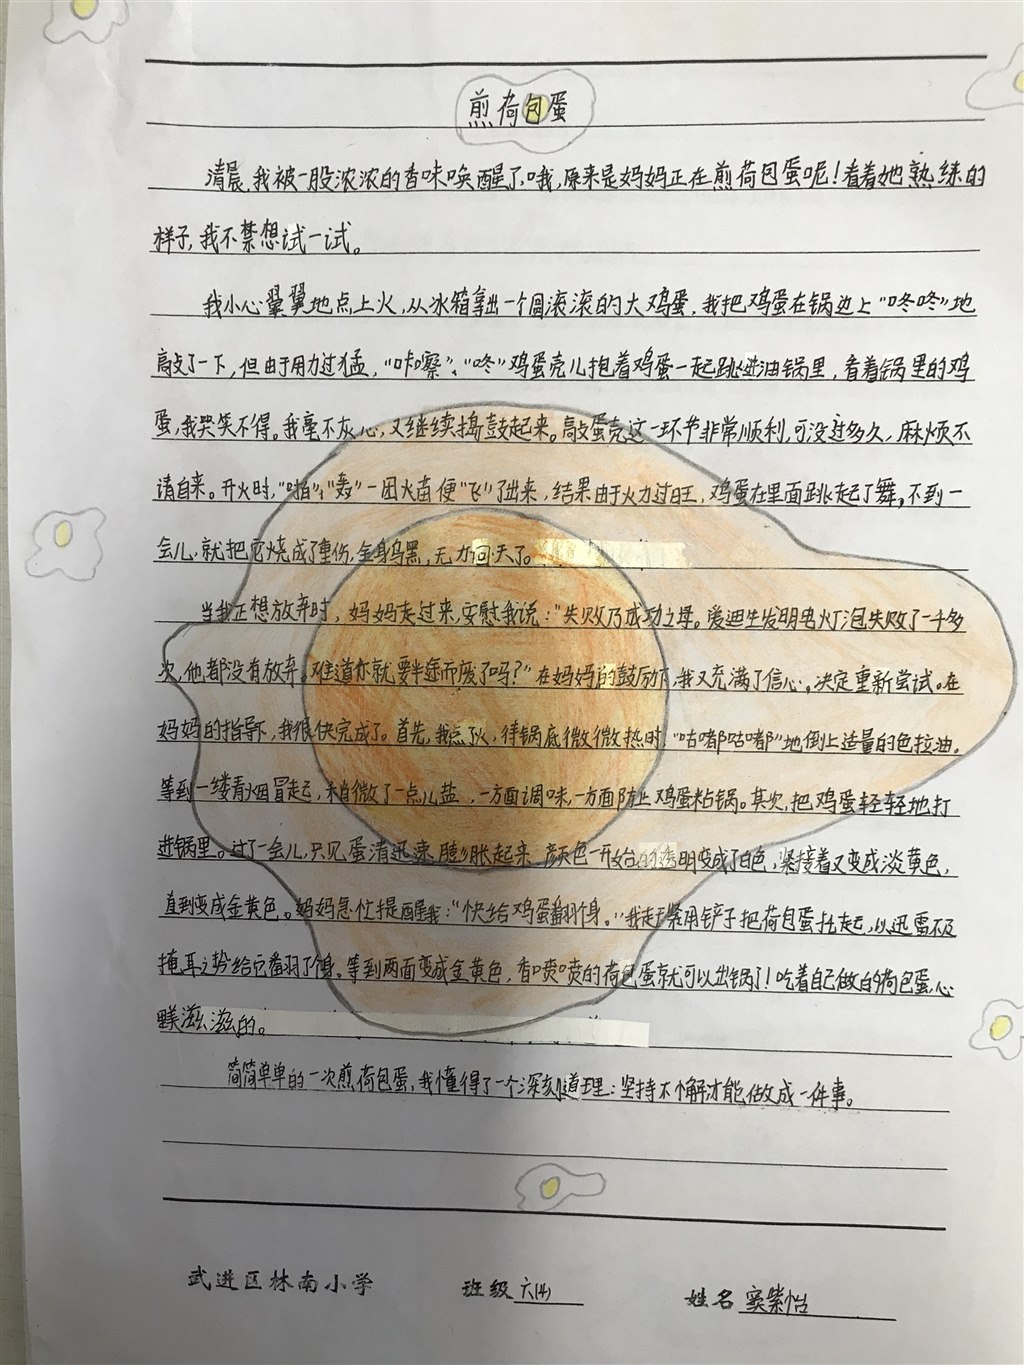 煎荷包蛋
清晨,我被一股浓浓的香味唤醒了,哦,原来是妈妈正在煎荷包蛋呢!看着她熟练的
样子,我不禁想试一试。
我小心翼翼地点上火,从冰箱拿出一个圆滚滚的大鸡蛋,我把鸡蛋在锅边上“咚咚”地
敲了一下,但由于用力过猛,“咔嚓”、“咚”鸡蛋壳儿抱着鸡蛋一起跳进油锅里,看着锅里的鸡
蛋,我哭笑不得。我毫不灰心,又继续捣鼓起来。敲蛋壳这一环节非常顺利,可没过多久,麻烦不
请自来。开火时,“啪”,“轰”一团火苗便“飞”了出来,结果由于火力过旺,鸡蛋在里面跳起了舞,不到一
会儿,就把它烧成了重伤,全身乌黑,无力回天了。
当我正想放弃时,妈妈走过来,安慰我说:“失败乃成功之母。爱迪生发明电灯泡失败了一千多
次,他都没有放弃。难道你就要半途而废了吗?”在妈妈的鼓励下,我又充满了信心。决定重新尝试。在
妈妈的指导下,我很快完成了。首先,我点了火,待锅底微微微热时,“咕嘟咕嘟”地倒上适量的色拉油。
等到一缕青烟冒起,稍微了一点儿盐,一方面调味,一方面防止鸡蛋粘锅。其次,把鸡蛋轻轻地打
进锅里。过了一会儿,只见蛋清迅速膨胀起来,颜色一开始的透明变成了白色,紧接着又变成淡黄色,
直到变成金黄色。妈妈急忙提醒我:“快给鸡蛋翻个身。”我赶紧用铲子把荷包蛋托起,以迅雷不及
掩耳之势给它翻了个身。等到两面变成金黄色,香喷喷的荷包蛋就可以出锅了!吃着自己做的荷包蛋,心
里美滋滋的。
简简单单的一次煎荷包蛋,我懂得了一个深刻道理:坚持不懈才能做成一件事。
武进区林南小学 班级 六(4) 姓名 窦紫怡